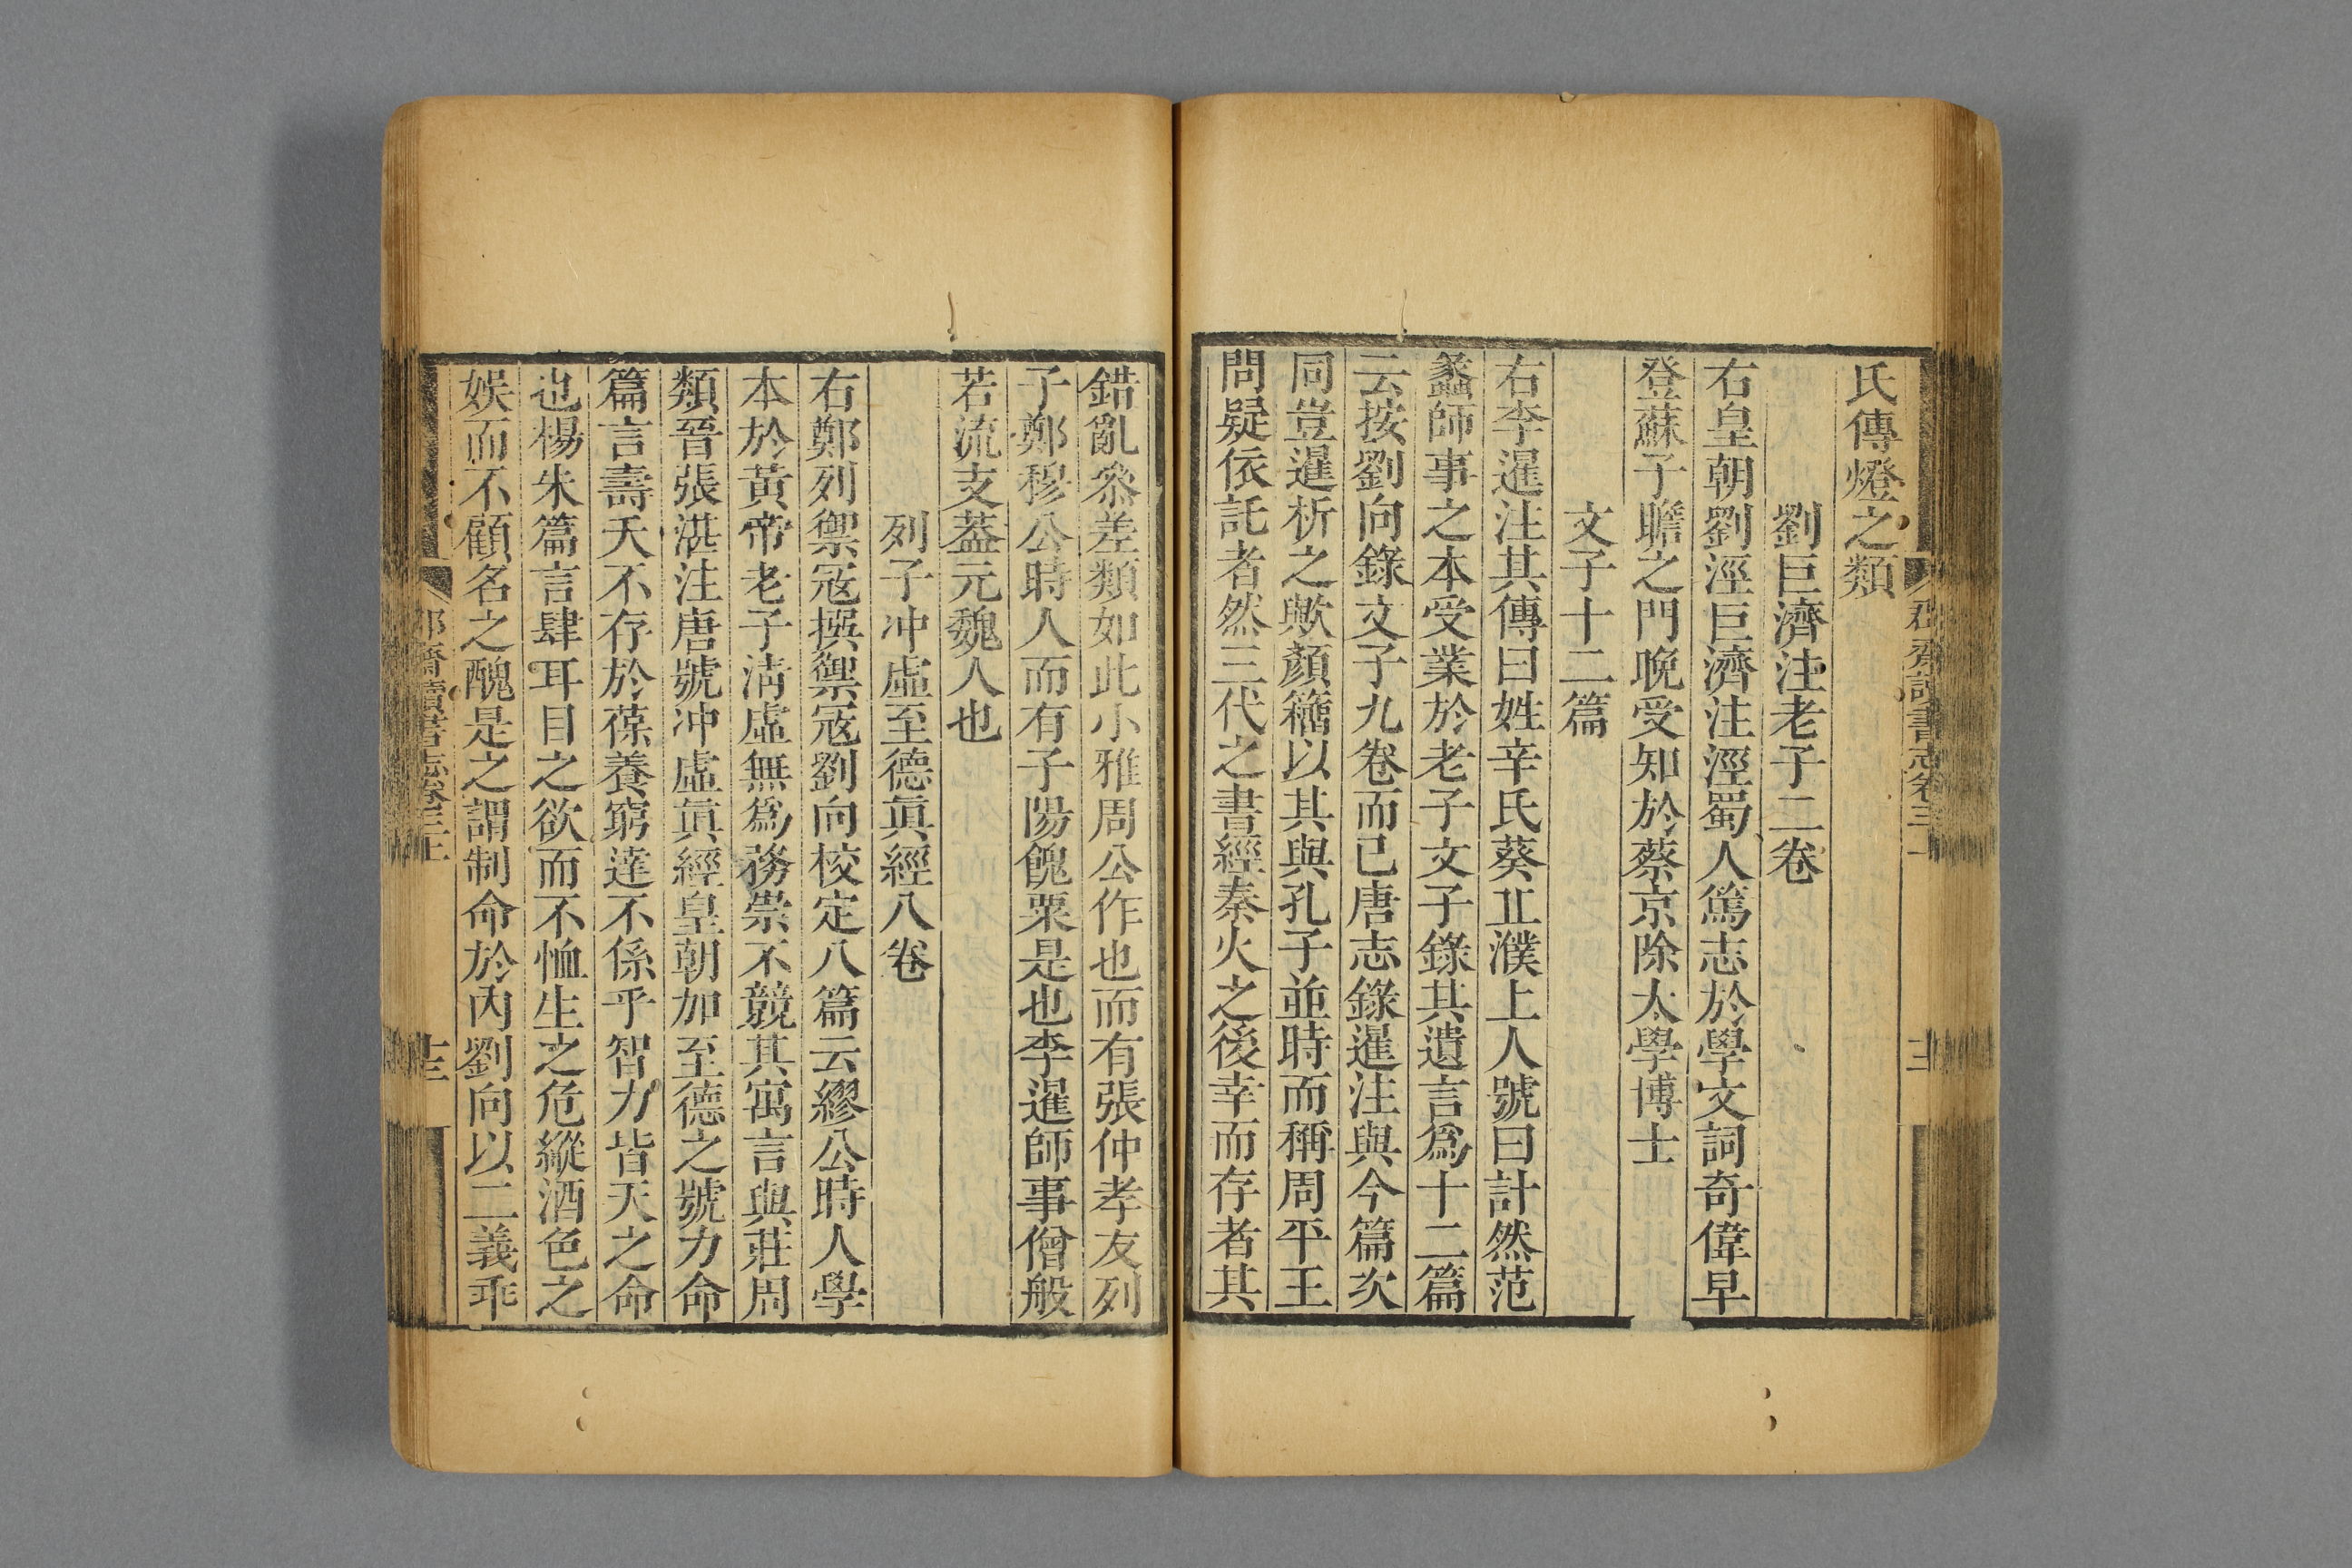 氏傳燈之類
劉巨濟注老子二卷
右皇朝劉涇巨濟注涇蜀人篤志於學文詞奇偉早
登蘇子瞻之門晚受知於蔡京除太學博士
文子十二篇
右李暹注其傳曰姓辛氏葵丠濮上人號曰計然范
蠡師事之本受業於老子文子錄其遺言爲十二篇
云按劉向錄文子九卷而已唐志錄暹注與今篇次
同豈暹析之歟顏籀以其與孔子並時而稱周平王
問疑依託者然三代之書經秦火之後幸而存者其
錯亂叅差類如此小雅周公作也而有張仲孝友列
子鄭穆公時人而有子陽餽粟是也李暹師事僧般
若流支葢元魏人也
列子冲虛至德眞經八卷
右鄭列禦宼撰禦宼劉向校定八篇云繆公時人學
本於黃帝老子淸虛無爲務崇不競其寓言與莊周
類晉張湛注唐號冲虛眞經皇朝加至德之號力命
篇言壽夭不存於葆養窮達不係乎智力皆天之命
也楊朱篇言肆耳目之欲而不恤生之危縱酒色之
娛而不顧名之醜是之謂制命於內劉向以二義乖
郡齋讀書志卷三上